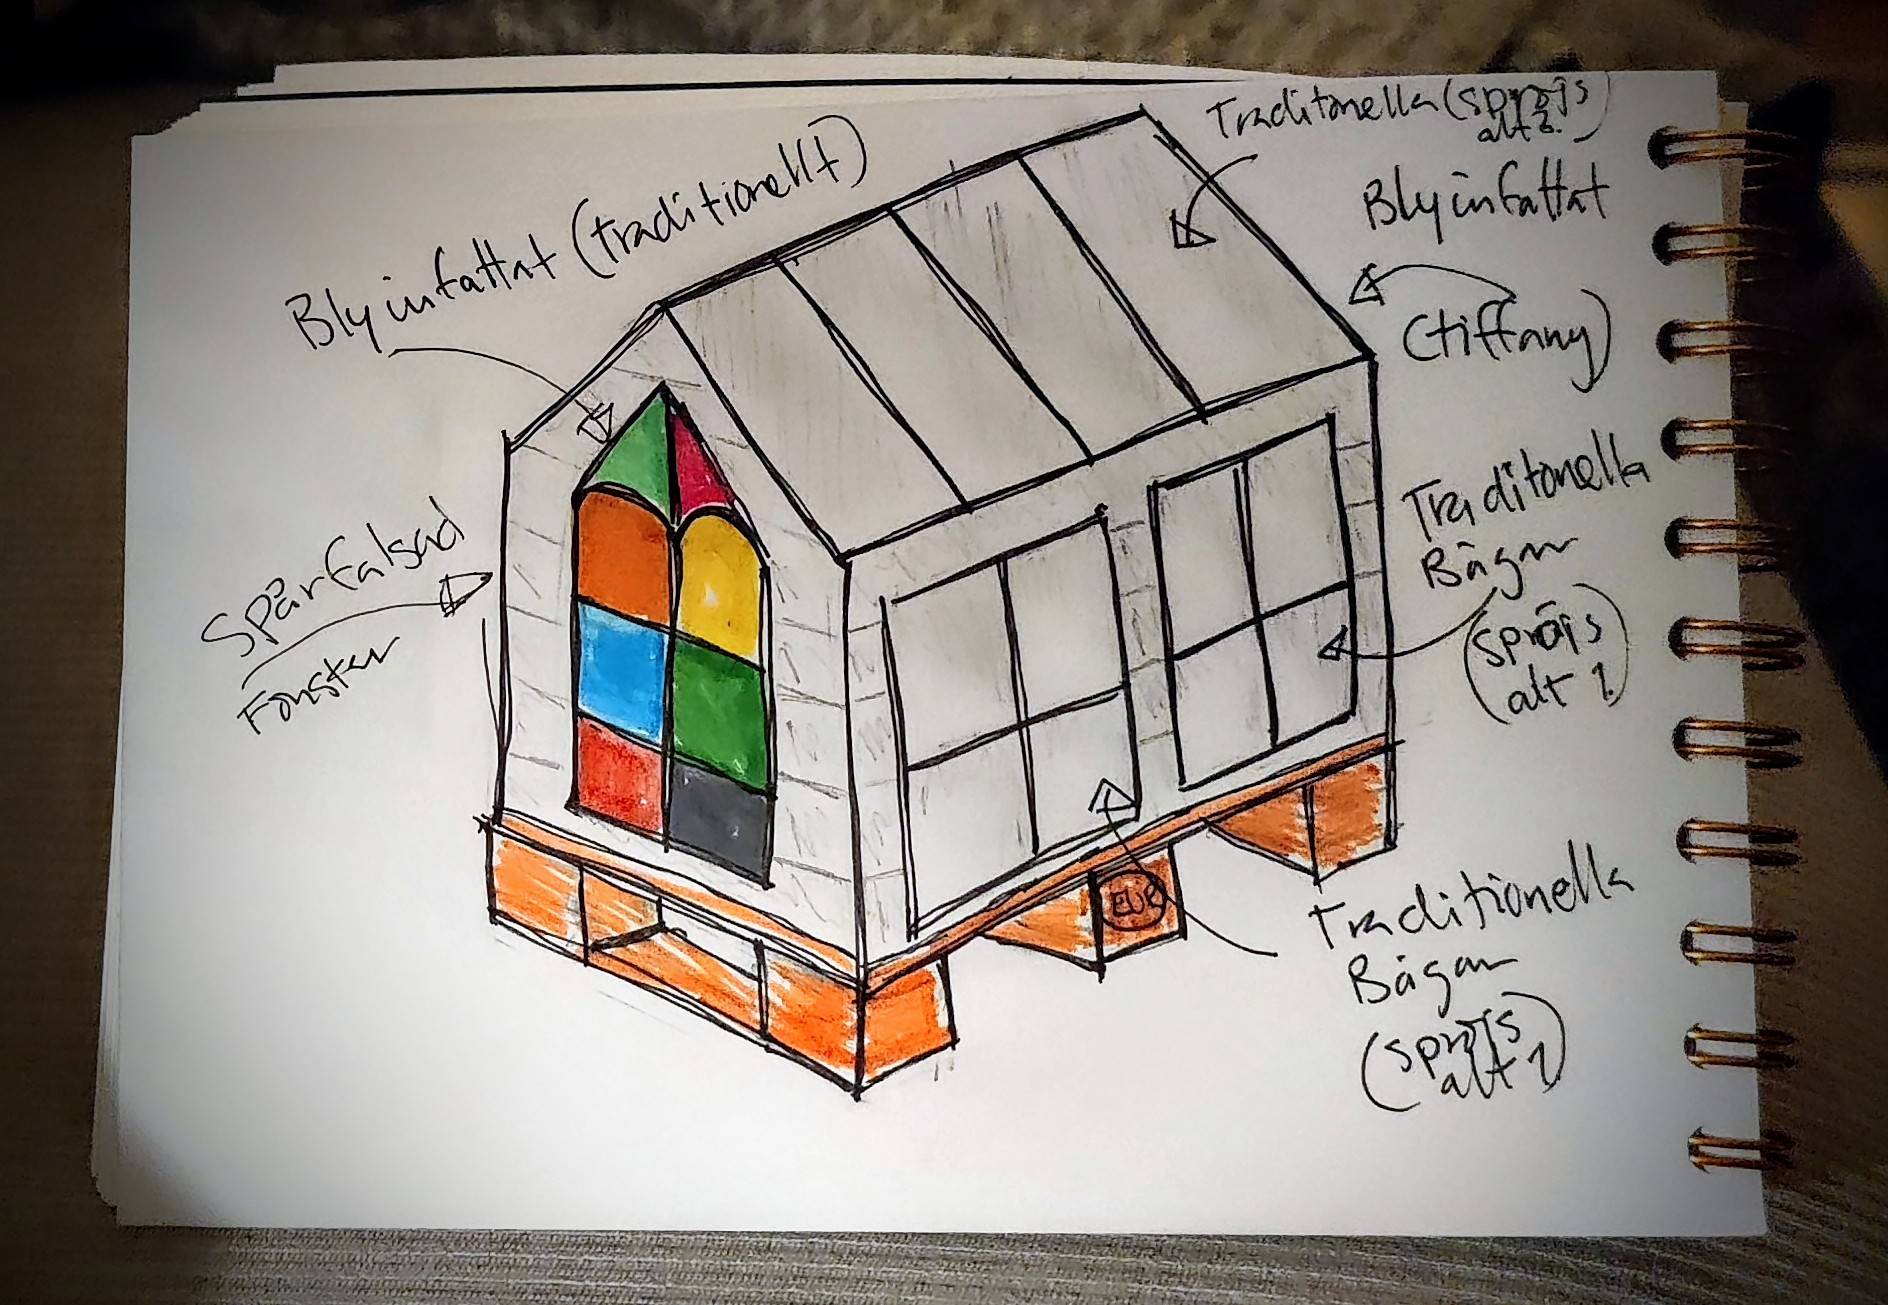 Blyinfattat (traditionellt)
Traditonella (spröjs
alt 2.)
Blyinfattat
(tiffany)
Spårfalsad
Fönster
Traditonella
Bågar
(spröjs
alt 1)
EUR
Traditionella
Bågar
(spröjs
alt 1)